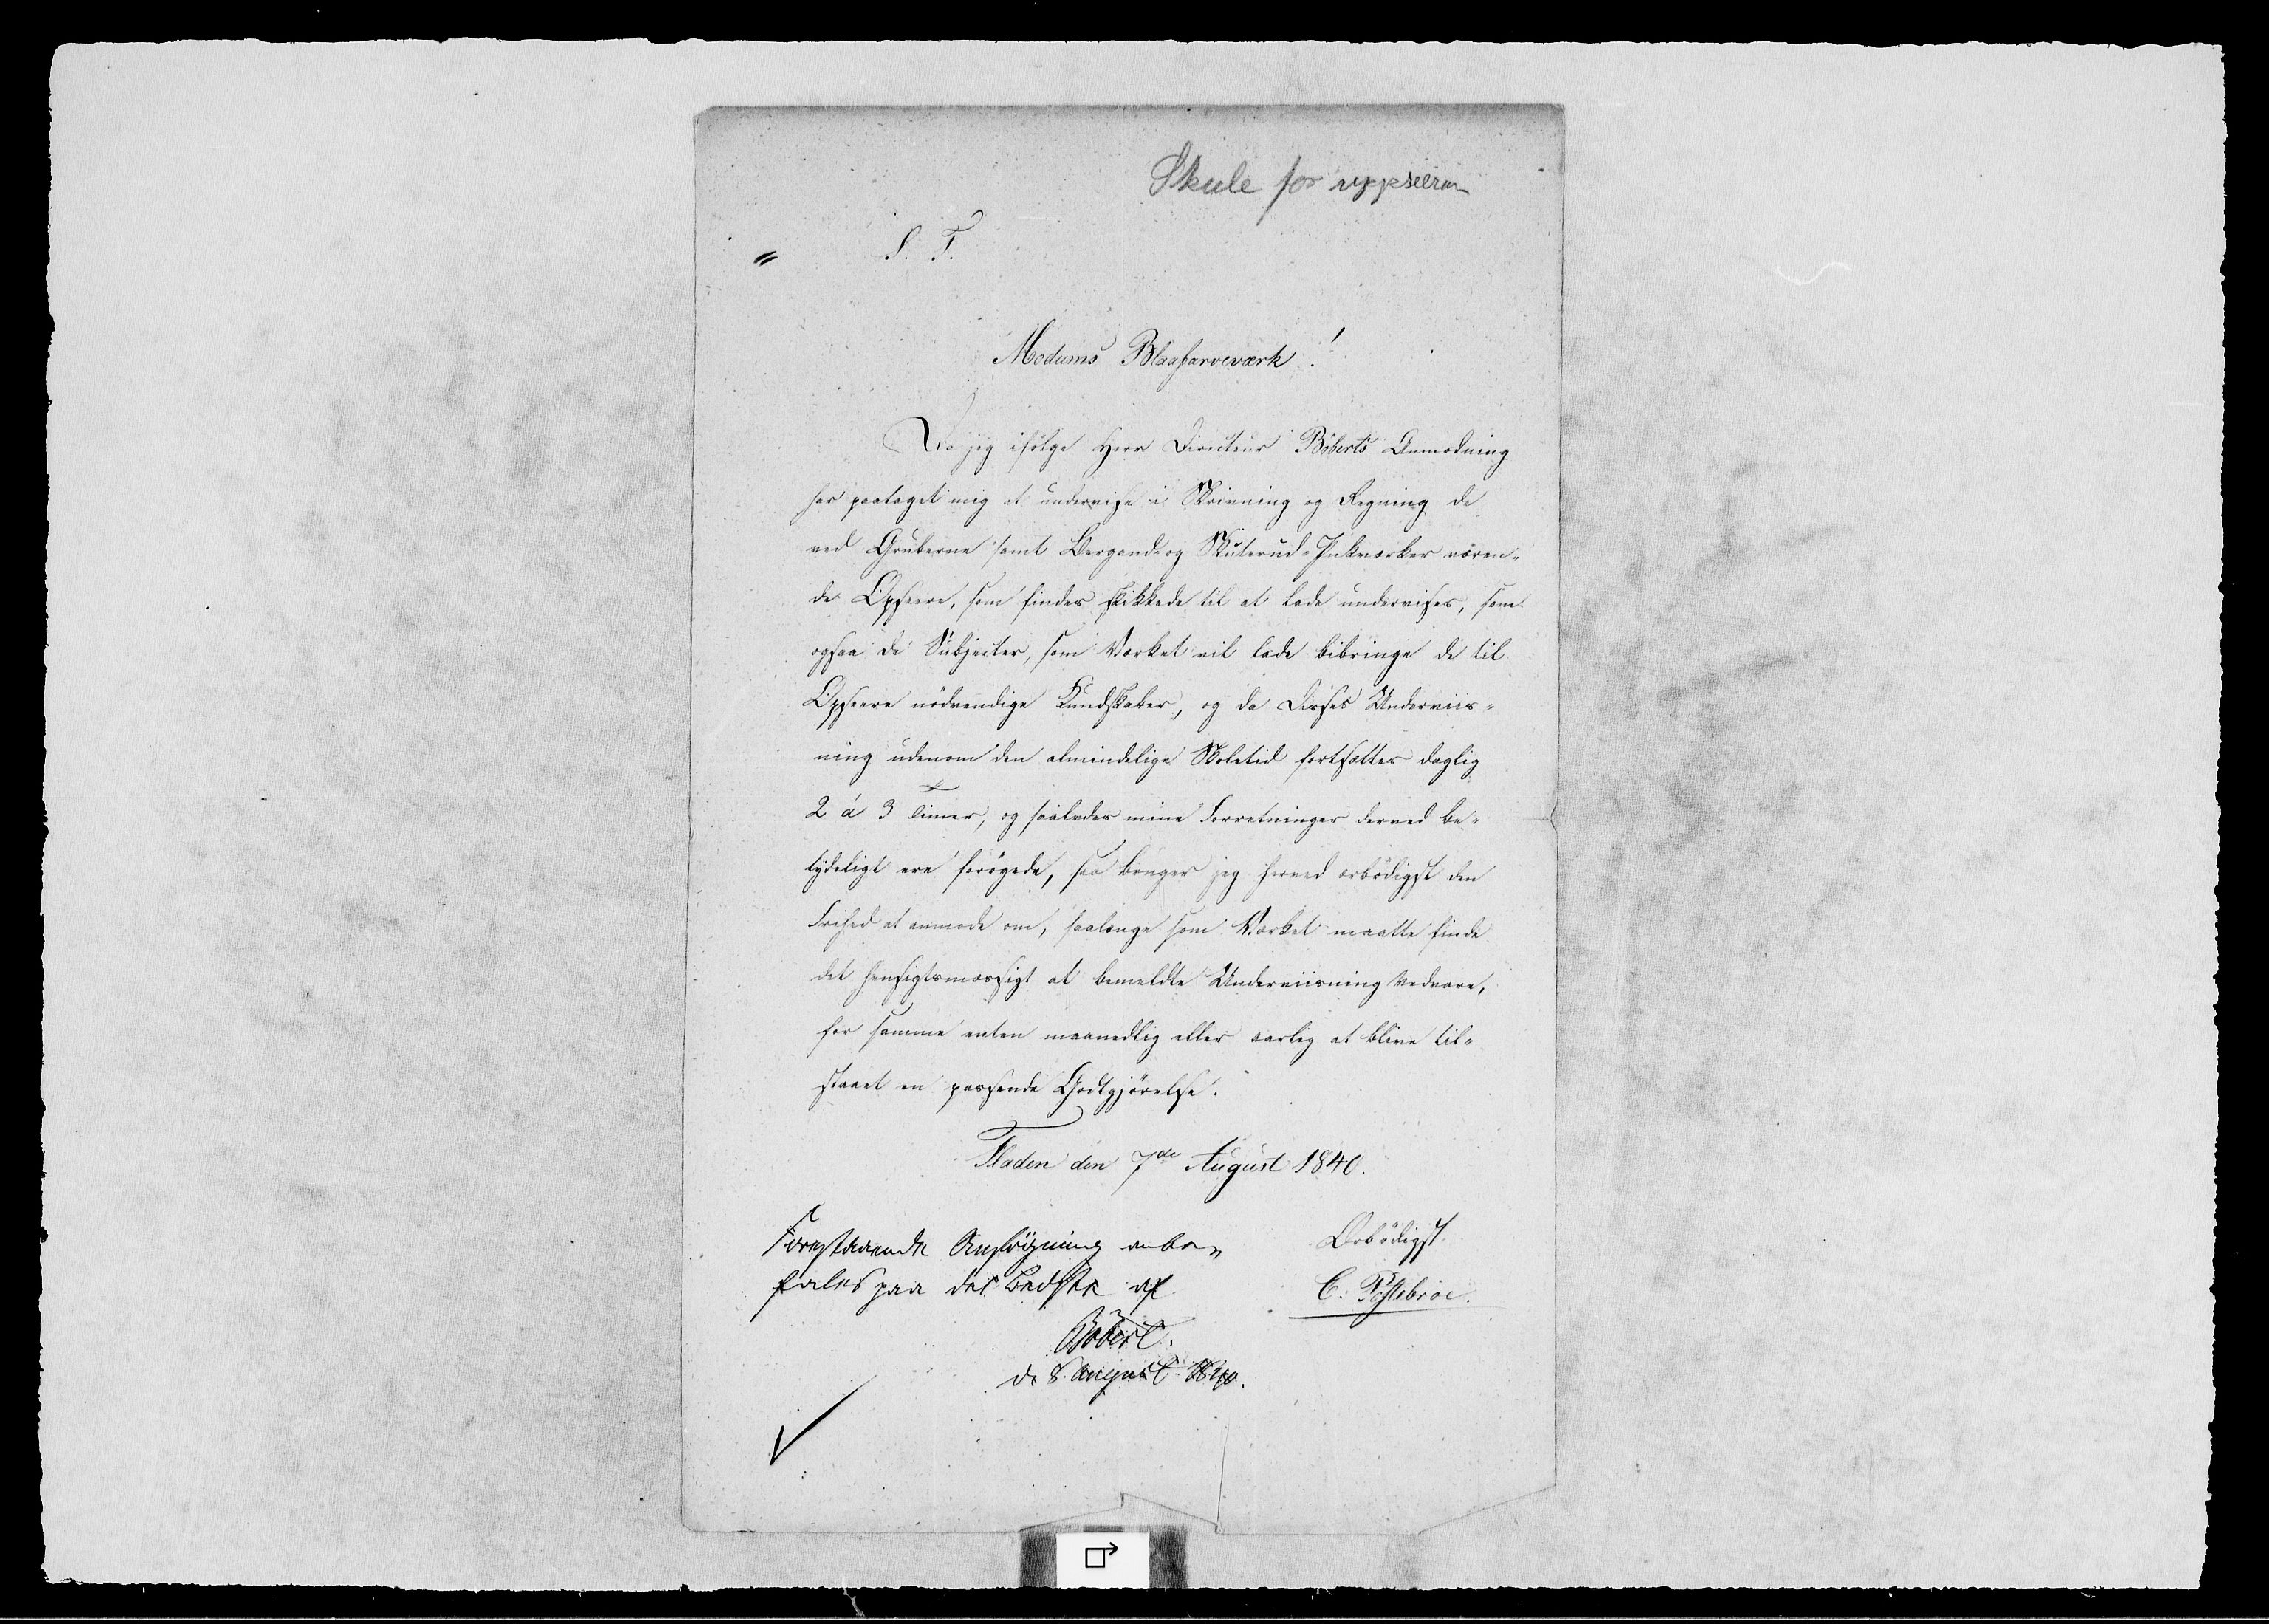 Skule for uppseerar
S. T.
Modums Blaafarveværk!
Da jeg ifølge Herr Directeur Böberts Anmodning
har paataget mig at undervise i Skrivning og Regning de
ved Gruberne samt Bergand- og Skuterud-Pukværker væren-
de Opseere, som findes skikkede til at lade undervises, som
ogsaa de Subjecter, som Værket vil lade bibringe de til
Opseere nödvendige Kundskaber, og da Disses Underviis-
ning udenom den almindelige Skoletid fortsættes daglig
2 á 3 Timer, og saaledes mine Forretninger derved be-
tydeligt ere forögede, saa bruger jeg herved ærbödigst den
Frihed at anmode om, saalænge som Værket maatte finde
det hensigtsmæssigt at bemeldte Underviisning vedvare,
for samme enten maanedlig eller aarlig at blive til-
staaet en passende Godtgjörelse.
Fladen den 7de August 1840.
Ærbödigst
C. Pöstebröe.
Forestaaende Ansögning anbe-
fales paa det Bedste af
Böbert.
d. 8. August 1840.